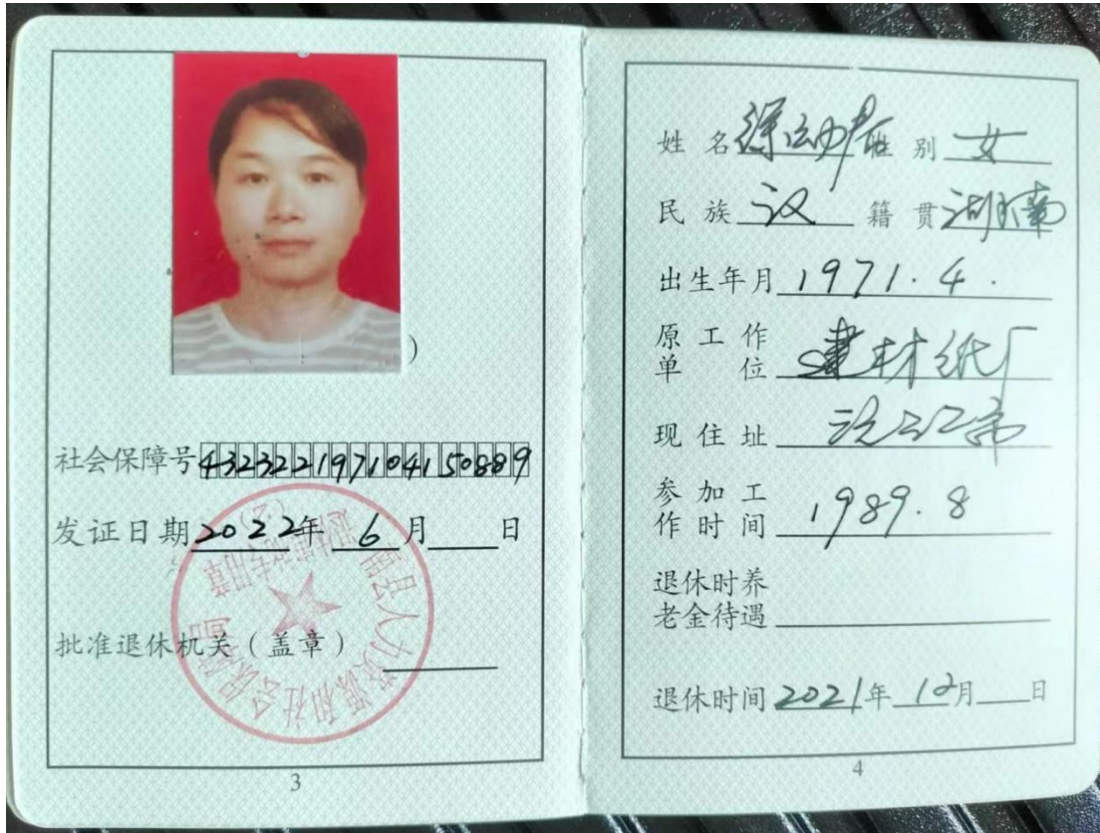 社会保障号 432322197104150889
发证日期 2022年 6月 日
批准退休机关(盖章)
南县人力资源和社会保障局
专用章
(2)
3
姓名 性别 女
民族 汉 籍贯 湖南
出生年月 1971.4.
原工作
单位 建材纸厂
现住址 沅江市
参加工
作时间 1989.8
退休时养
老金待遇
退休时间 2021年 12月 日
4